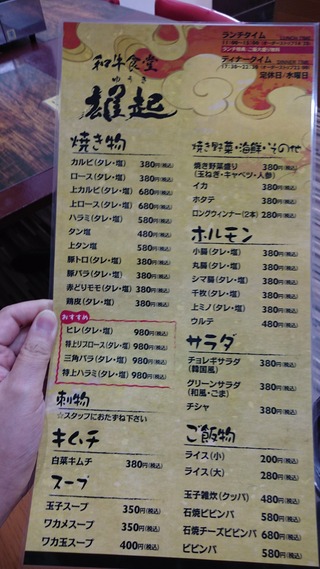 和牛食堂
ゆうき
雄起
ランチタイム LUNCH TIME
ディナータイム DINNER TIME
定休日/水曜日
焼き物
カルビ(タレ・塩) 380円(税込)
ロース(タレ・塩) 380円(税込)
上カルビ(タレ・塩) 680円(税込)
上ロース(タレ・塩) 680円(税込)
ハラミ(タレ・塩) 580円(税込)
タン塩 480円(税込)
上タン塩 580円(税込)
豚トロ(タレ・塩) 380円(税込)
豚バラ(タレ・塩) 380円(税込)
赤どりモモ(タレ・塩) 380円(税込)
鶏皮(タレ・塩) 380円(税込)
おすすめ
ヒレ(タレ・塩) 980円(税込)
特上リブロース(タレ・塩) 980円(税込)
三角バラ(タレ・塩) 980円(税込)
特上ハラミ(タレ・塩) 980円(税込)
刺物
☆スタッフにおたずね下さい
キムチ
白菜キムチ 380円(税込)
スープ
玉子スープ 350円(税込)
ワカメスープ 350円(税込)
ワカ玉スープ 400円(税込)
焼き野菜・海鮮・その他
焼き野菜盛り 380円(税込)
(玉ねぎ・キャベツ・人参)
イカ 380円(税込)
ホタテ 380円(税込)
ロングウィンナー(2本) 280円(税込)
ホルモン
小腸(タレ・塩) 380円(税込)
丸腸(タレ・塩) 380円(税込)
シマ腸(タレ・塩) 380円(税込)
千枚(タレ・塩) 380円(税込)
上ミノ(タレ・塩) 380円(税込)
ウルテ 480円(税込)
サラダ
チョレギサラダ 380円(税込)
(韓国風)
グリーンサラダ 380円(税込)
(和風・ごま)
チシャ 380円(税込)
ご飯物
ライス(小) 200円(税込)
ライス(大) 280円(税込)
玉子雑炊(クッパ) 480円(税込)
石焼ビビンバ 580円(税込)
石焼チーズビビンバ 680円(税込)
ビビンバ 580円(税込)